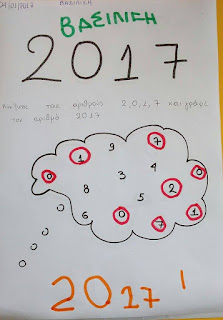 04/01/2017 ΒΑΣΙΛΙΚΗ
ΒΑΣΙΛΙΚΗ
2017
Κύκλωσε τους αριθμούς 2,0,1,7 και γράψε
τον αριθμό 2017
9 7
1
0 3 4
8 2
5
6 0 1
7
2017